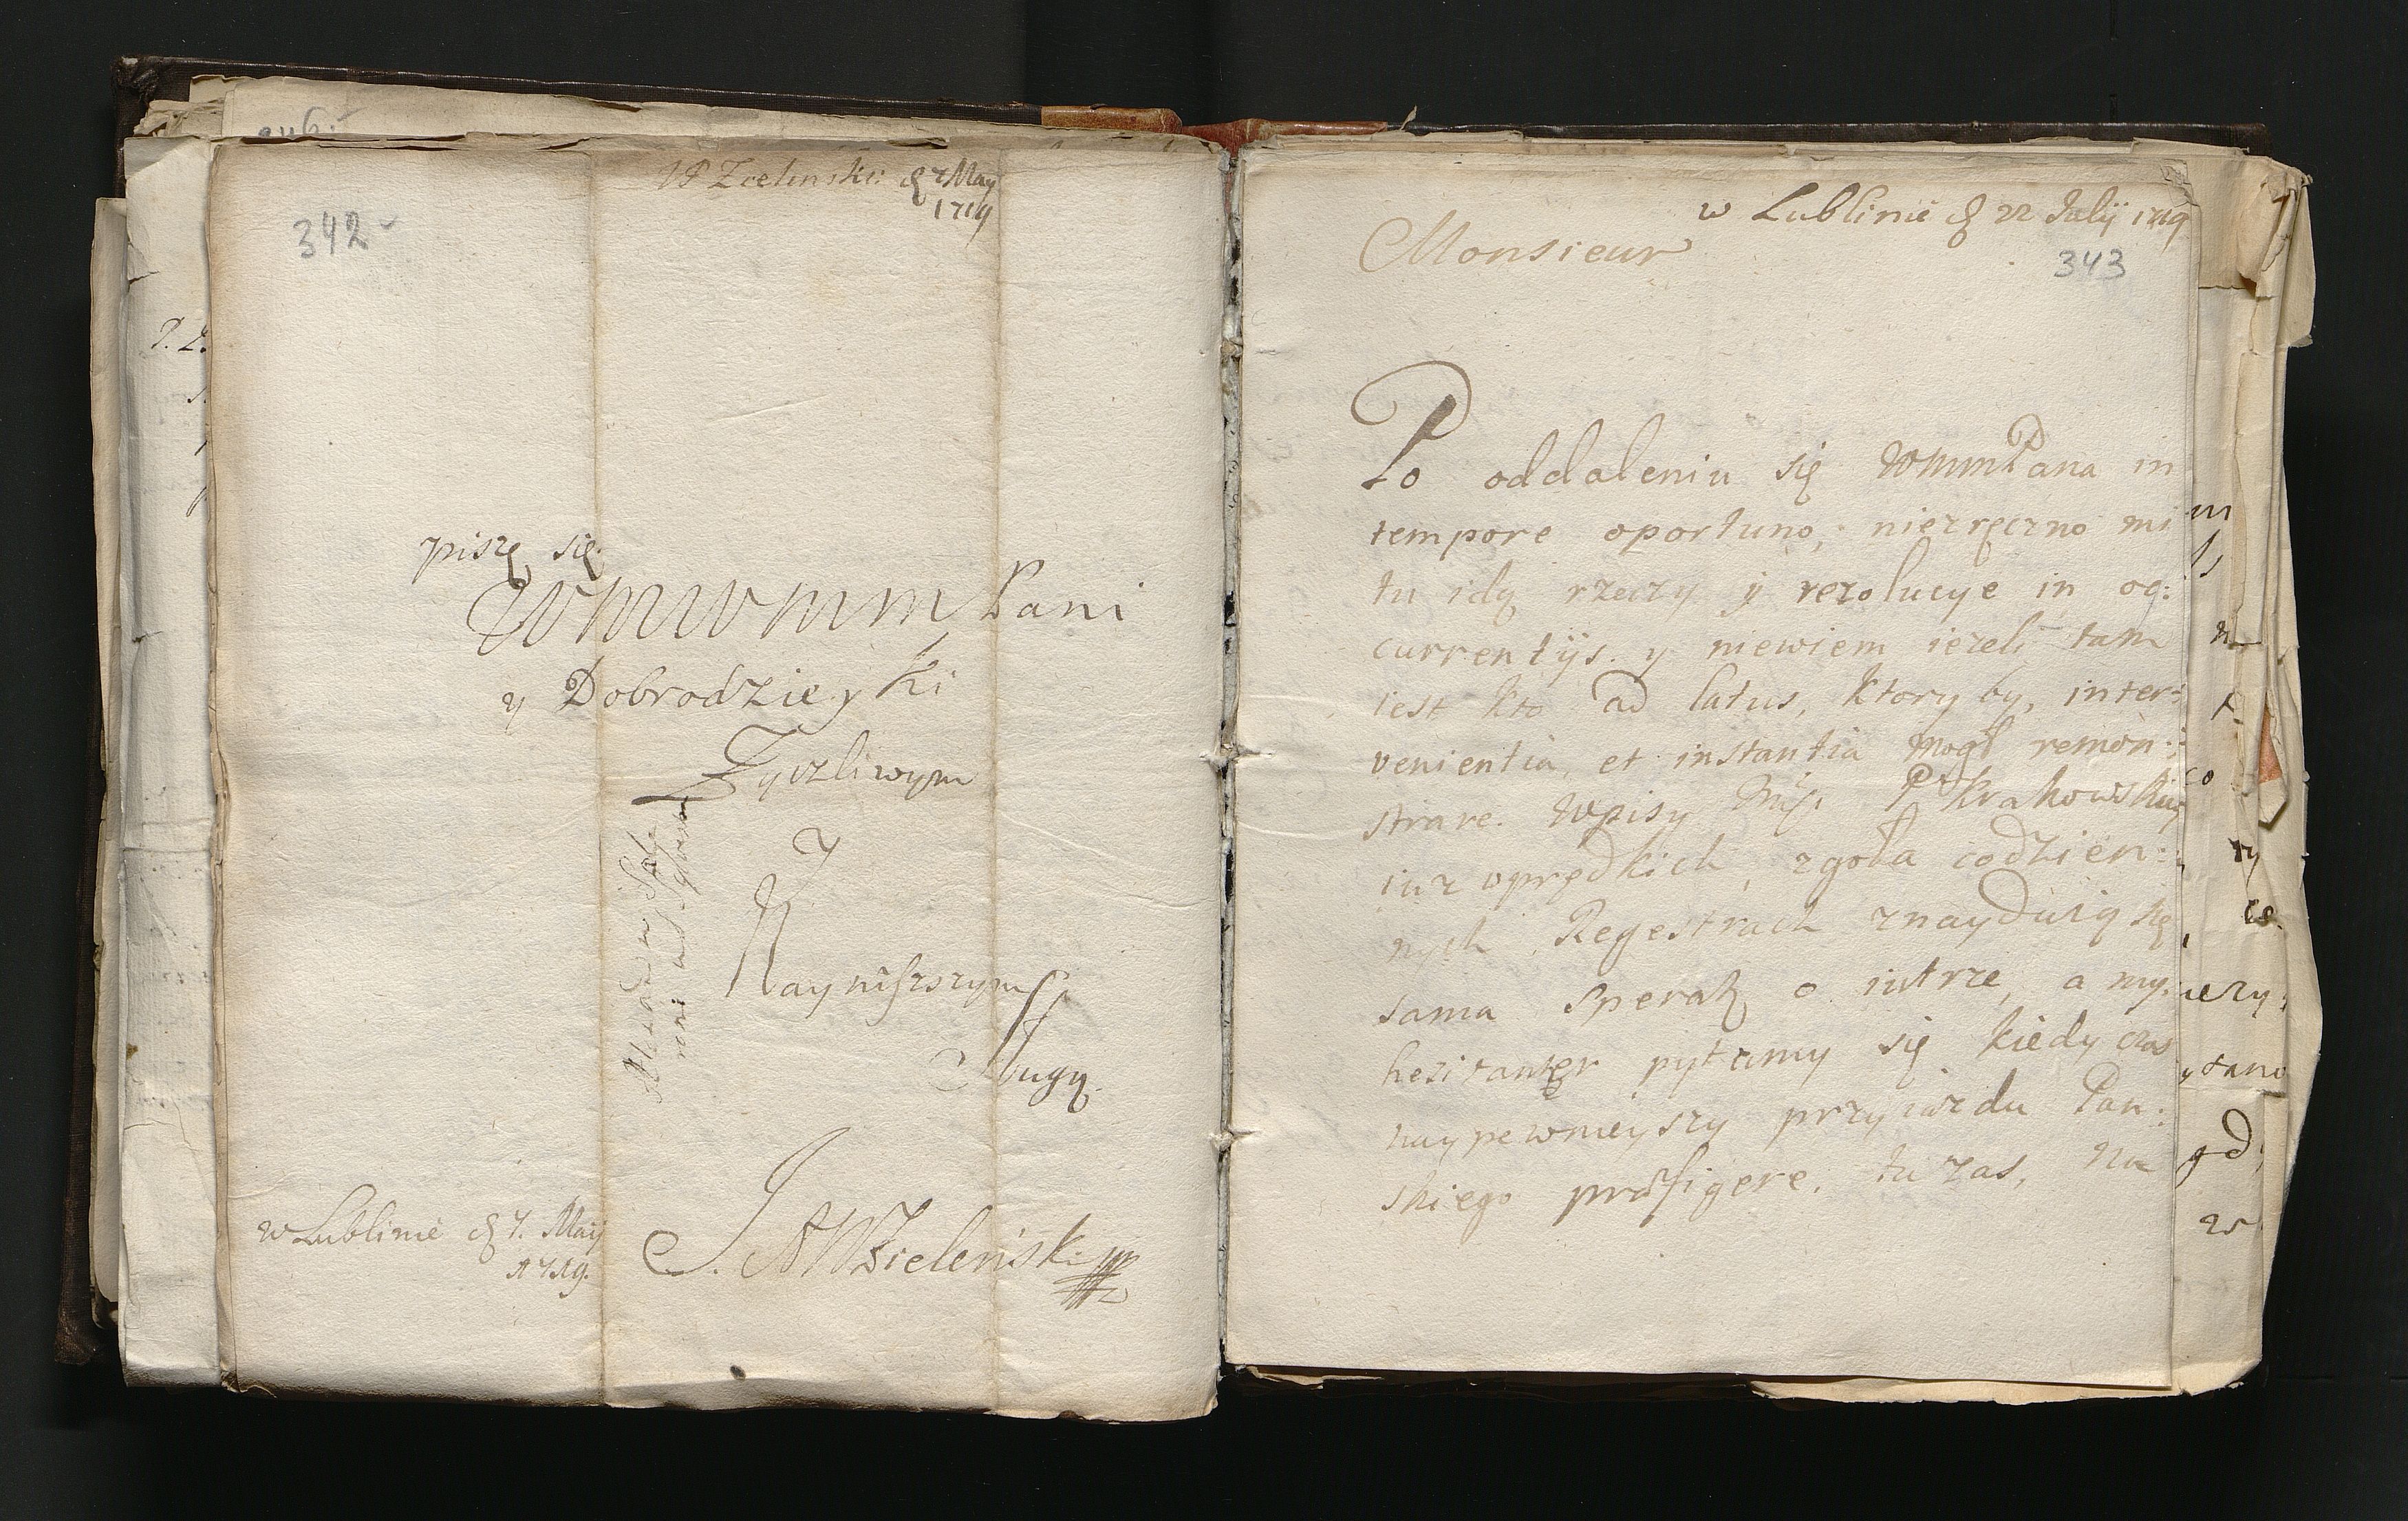 342
W Zielinski d 7 May
1719
piszę się
WMWMM Pani
y Dobrodzieyki
Zyczliwym
I
Nayniższym
Sługą.
w Lublinie d 7. Maij
1719.
J. A W Zielenski
w Lublinie d 22 Julij 1719
343
Monsieur
Po oddaleniu się WMMPana in
tempore oportuno, niezręczno mi
tu idą rzeczy y rezolucye in oc:
currentijs. y niewiem iezeli tam
iest kto ad latus, ktory by, inter:
venientia, et instantia mogł remon:
strare. Wpisy P Krakowskiey
iuz wprędkich, zgoła codzien:
nych Regestrach znayduią się
sama o iutrze, a my
hezitanter pytamy się kiedy czas
naypewnieyszy przyiazdu Pan:
skiego præfigere. tu zas, na